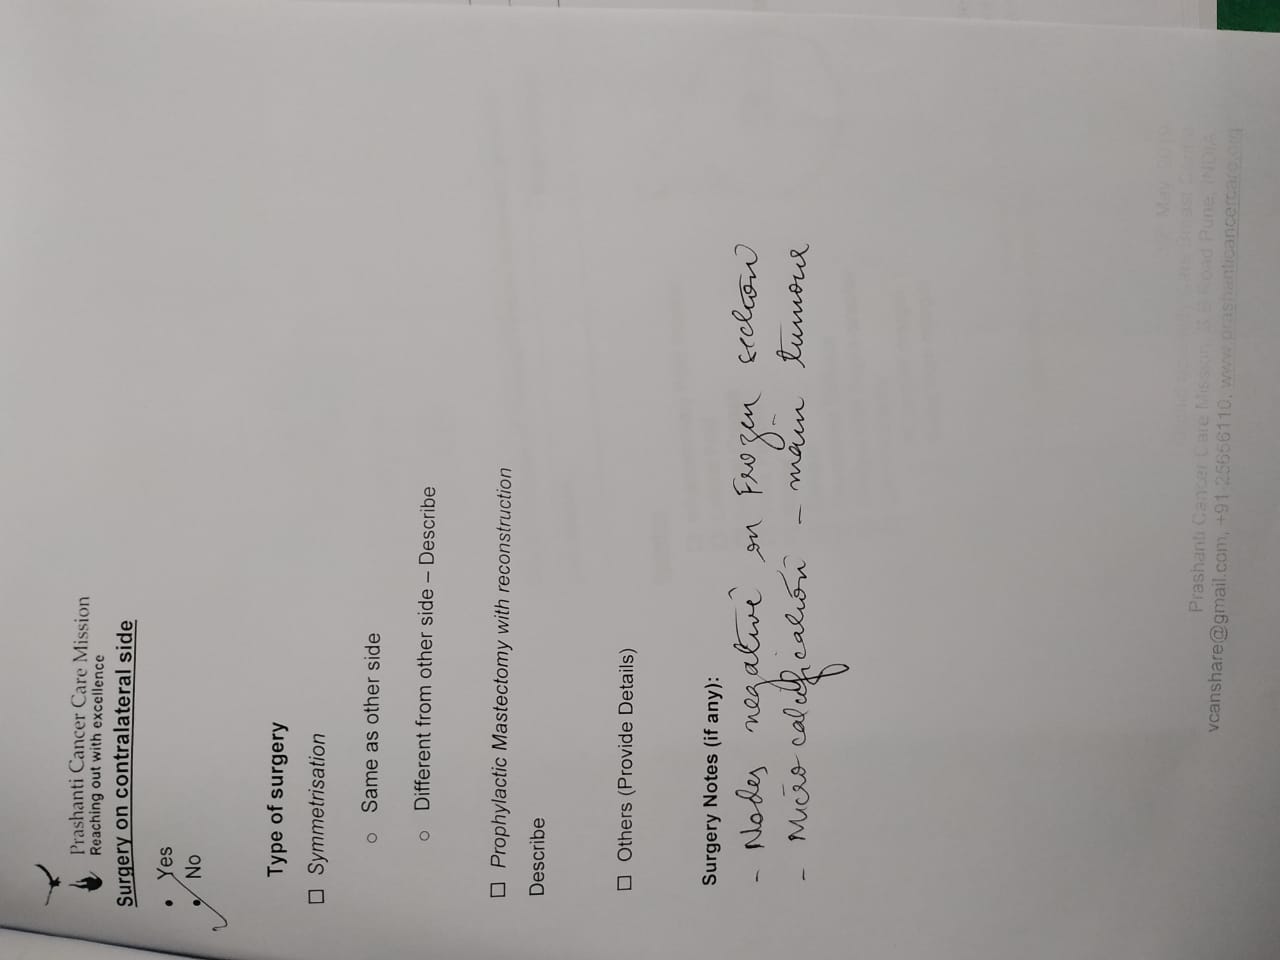 Prashanti Cancer Care Mission
Reaching out with excellence
Surgery on contralateral side
• Yes
• No
Type of surgery
□ Symmetrisation
○ Same as other side
○ Different from other side – Describe
□ Prophylactic Mastectomy with reconstruction
Describe
□ Others (Provide Details)
Surgery Notes (if any):
- Nodes negative on Frozen section
- Micro calcification - main tumour
May 2019
Prashanti Cancer Care Mission, Road Pune, INDIA
vcanshare@gmail.com, +91 25656110, www.prashanticancercare.org